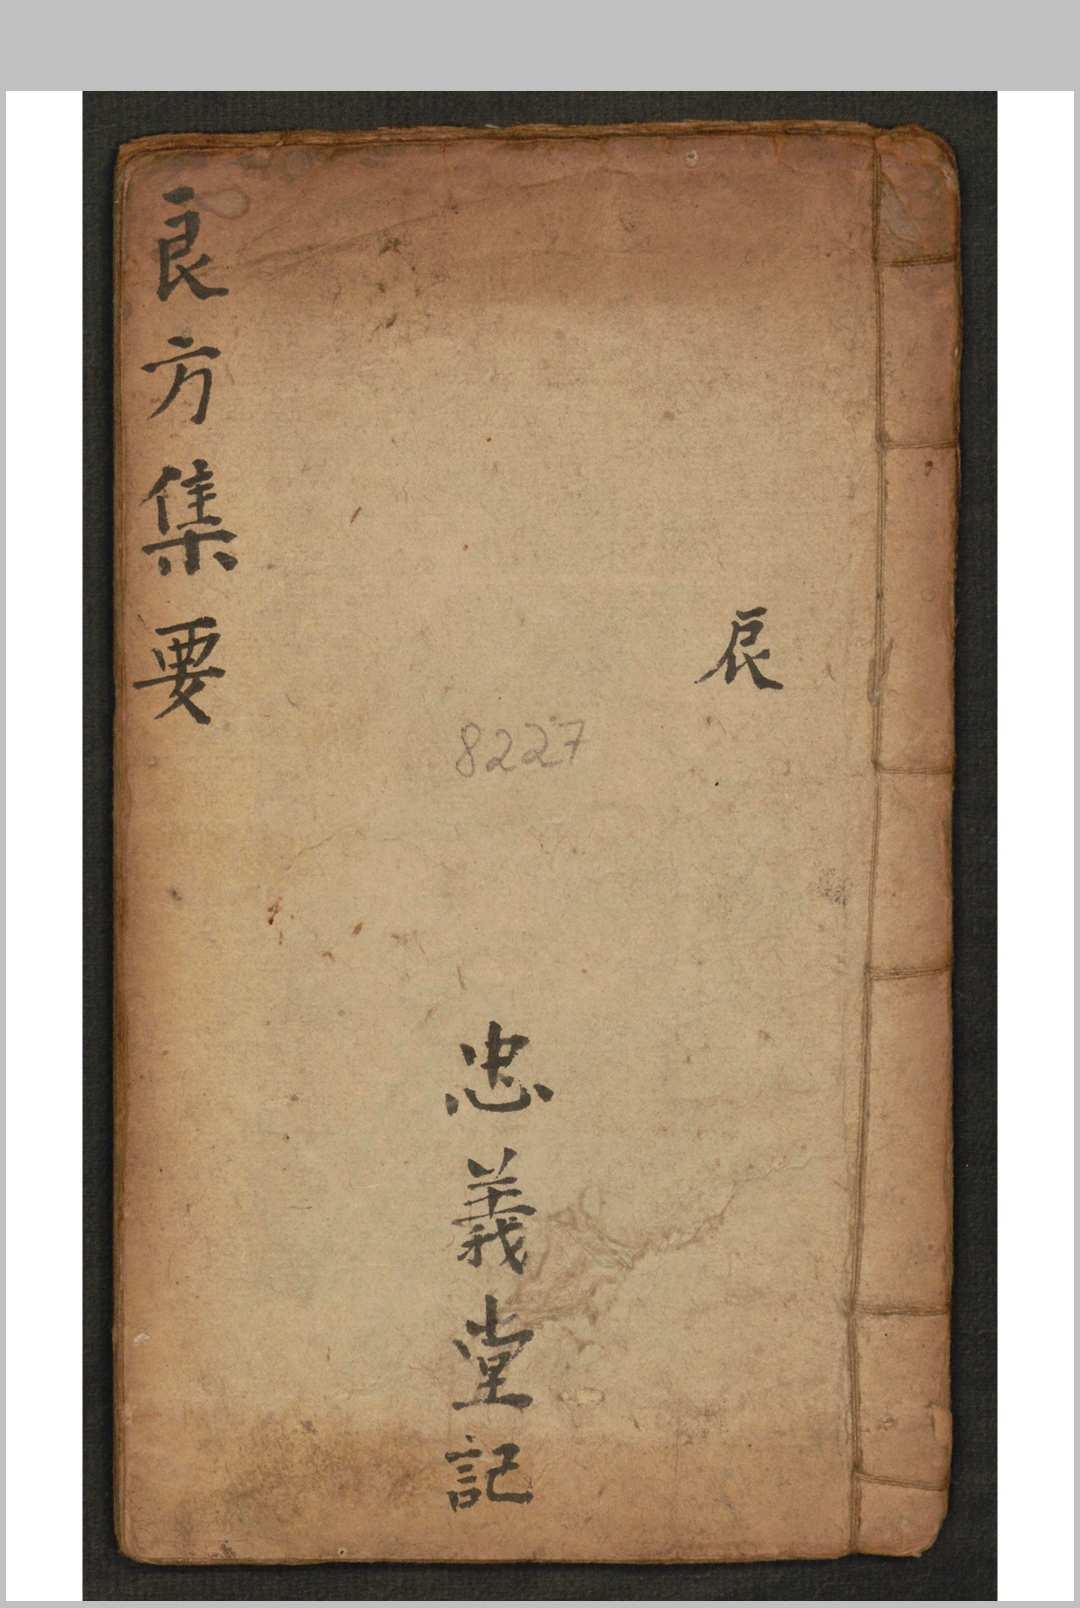 8227
忠義堂記
良方集要